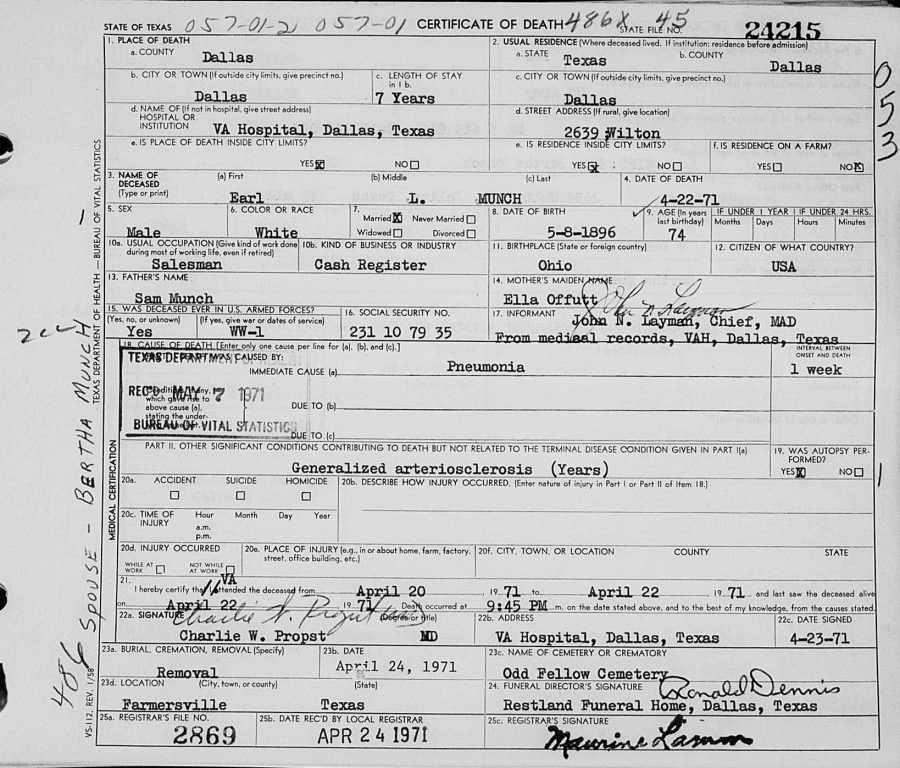 STATE OF TEXAS 057-01-2 057-01 CERTIFICATE OF DEATH 486X 45 STATE FILE NO. 24215
1. PLACE OF DEATH
a. COUNTY Dallas
2. USUAL RESIDENCE (Where deceased lived. If institution: residence before admission)
a. STATE Texas b. COUNTY Dallas
b. CITY OR TOWN (If outside city limits, give precinct no.)
Dallas
c. LENGTH OF STAY in 1 b.
7 Years
c. CITY OR TOWN (If outside city limits, give precinct no.)
Dallas
d. NAME OF (If not in hospital, give street address)
HOSPITAL OR
INSTITUTION VA Hospital, Dallas, Texas
d. STREET ADDRESS (If rural, give location)
2639 Wilton
e. IS PLACE OF DEATH INSIDE CITY LIMITS?
YES X NO
e. IS RESIDENCE INSIDE CITY LIMITS?
YES X NO
f. IS RESIDENCE ON A FARM?
YES NO X
053
3. NAME OF DECEASED (Type or print)
(a) First (b) Middle (c) Last
Earl L. MUNCH
4. DATE OF DEATH
4-22-71
5. SEX
Male
6. COLOR OR RACE
White
7. Married X Never Married
Widowed Divorced
8. DATE OF BIRTH
5-8-1896
9. AGE (In years last birthday)
74
IF UNDER 1 YEAR IF UNDER 24 HRS.
Months Days Hours Minutes
10a. USUAL OCCUPATION (Give kind of work done during most of working life, even if retired)
Salesman
10b. KIND OF BUSINESS OR INDUSTRY
Cash Register
11. BIRTHPLACE (State or foreign country)
Ohio
12. CITIZEN OF WHAT COUNTRY?
USA
13. FATHER'S NAME
Sam Munch
14. MOTHER'S MAIDEN NAME
Ella Offutt
15. WAS DECEASED EVER IN U.S. ARMED FORCES?
(Yes, no, or unknown) (If yes, give war or dates of service)
Yes WW-1
16. SOCIAL SECURITY NO.
231 10 79 35
17. INFORMANT John N. Layman
John N. Layman, Chief, MAD
From medical records, VAH, Dallas, Texas
18. CAUSE OF DEATH [Enter only one cause per line for (a), (b), and (c).]
INTERVAL BETWEEN ONSET AND DEATH
WAS CAUSED BY:
IMMEDIATE CAUSE (a) Pneumonia
1 week
TEXAS DEPARTMENT OF
REC'D MAY 7 1971
BUREAU OF VITAL STATISTICS
which gave rise to
above cause (a),
stating the under-
DUE TO (b)
DUE TO (c)
PART II. OTHER SIGNIFICANT CONDITIONS CONTRIBUTING TO DEATH BUT NOT RELATED TO THE TERMINAL DISEASE CONDITION GIVEN IN PART I(a)
Generalized arteriosclerosis (Years)
19. WAS AUTOPSY PERFORMED?
YES X NO
20a. ACCIDENT SUICIDE HOMICIDE
20b. DESCRIBE HOW INJURY OCCURRED. (Enter nature of injury in Part I or Part II of Item 18.)
20c. TIME OF INJURY
Hour Month Day Year
a.m.
p.m.
20d. INJURY OCCURRED
WHILE AT WORK NOT WHILE AT WORK
20e. PLACE OF INJURY (e.g., in or about home, farm, factory, street, office building, etc.)
20f. CITY, TOWN, OR LOCATION COUNTY STATE
21. I hereby certify that VA attended the deceased from April 20, 19 71 to April 22 19 71 and last saw the deceased alive
on April 22 19 71 Death occurred at 9:45 PM m. on the date stated above, and to the best of my knowledge, from the causes stated.
22a. SIGNATURE Charlie W. Propst (Degree or title)
Charlie W. Propst MD
22b. ADDRESS
VA Hospital, Dallas, Texas
22c. DATE SIGNED
4-23-71
23a. BURIAL, CREMATION, REMOVAL (Specify)
Removal
23b. DATE
April 24, 1971
23c. NAME OF CEMETERY OR CREMATORY
Odd Fellow Cemetery
23d. LOCATION (City, town, or county) (State)
Farmersville Texas
24. FUNERAL DIRECTOR'S SIGNATURE Ronald Dennis
Restland Funeral Home, Dallas, Texas
25a. REGISTRAR'S FILE NO.
2869
25b. DATE REC'D BY LOCAL REGISTRAR
APR 24 1971
25c. REGISTRAR'S SIGNATURE
TEXAS DEPARTMENT OF HEALTH — BUREAU OF VITAL STATISTICS
MEDICAL CERTIFICATION
VS-112, REV. 1/58
486 SPOUSE - BERTHA MUNCH -